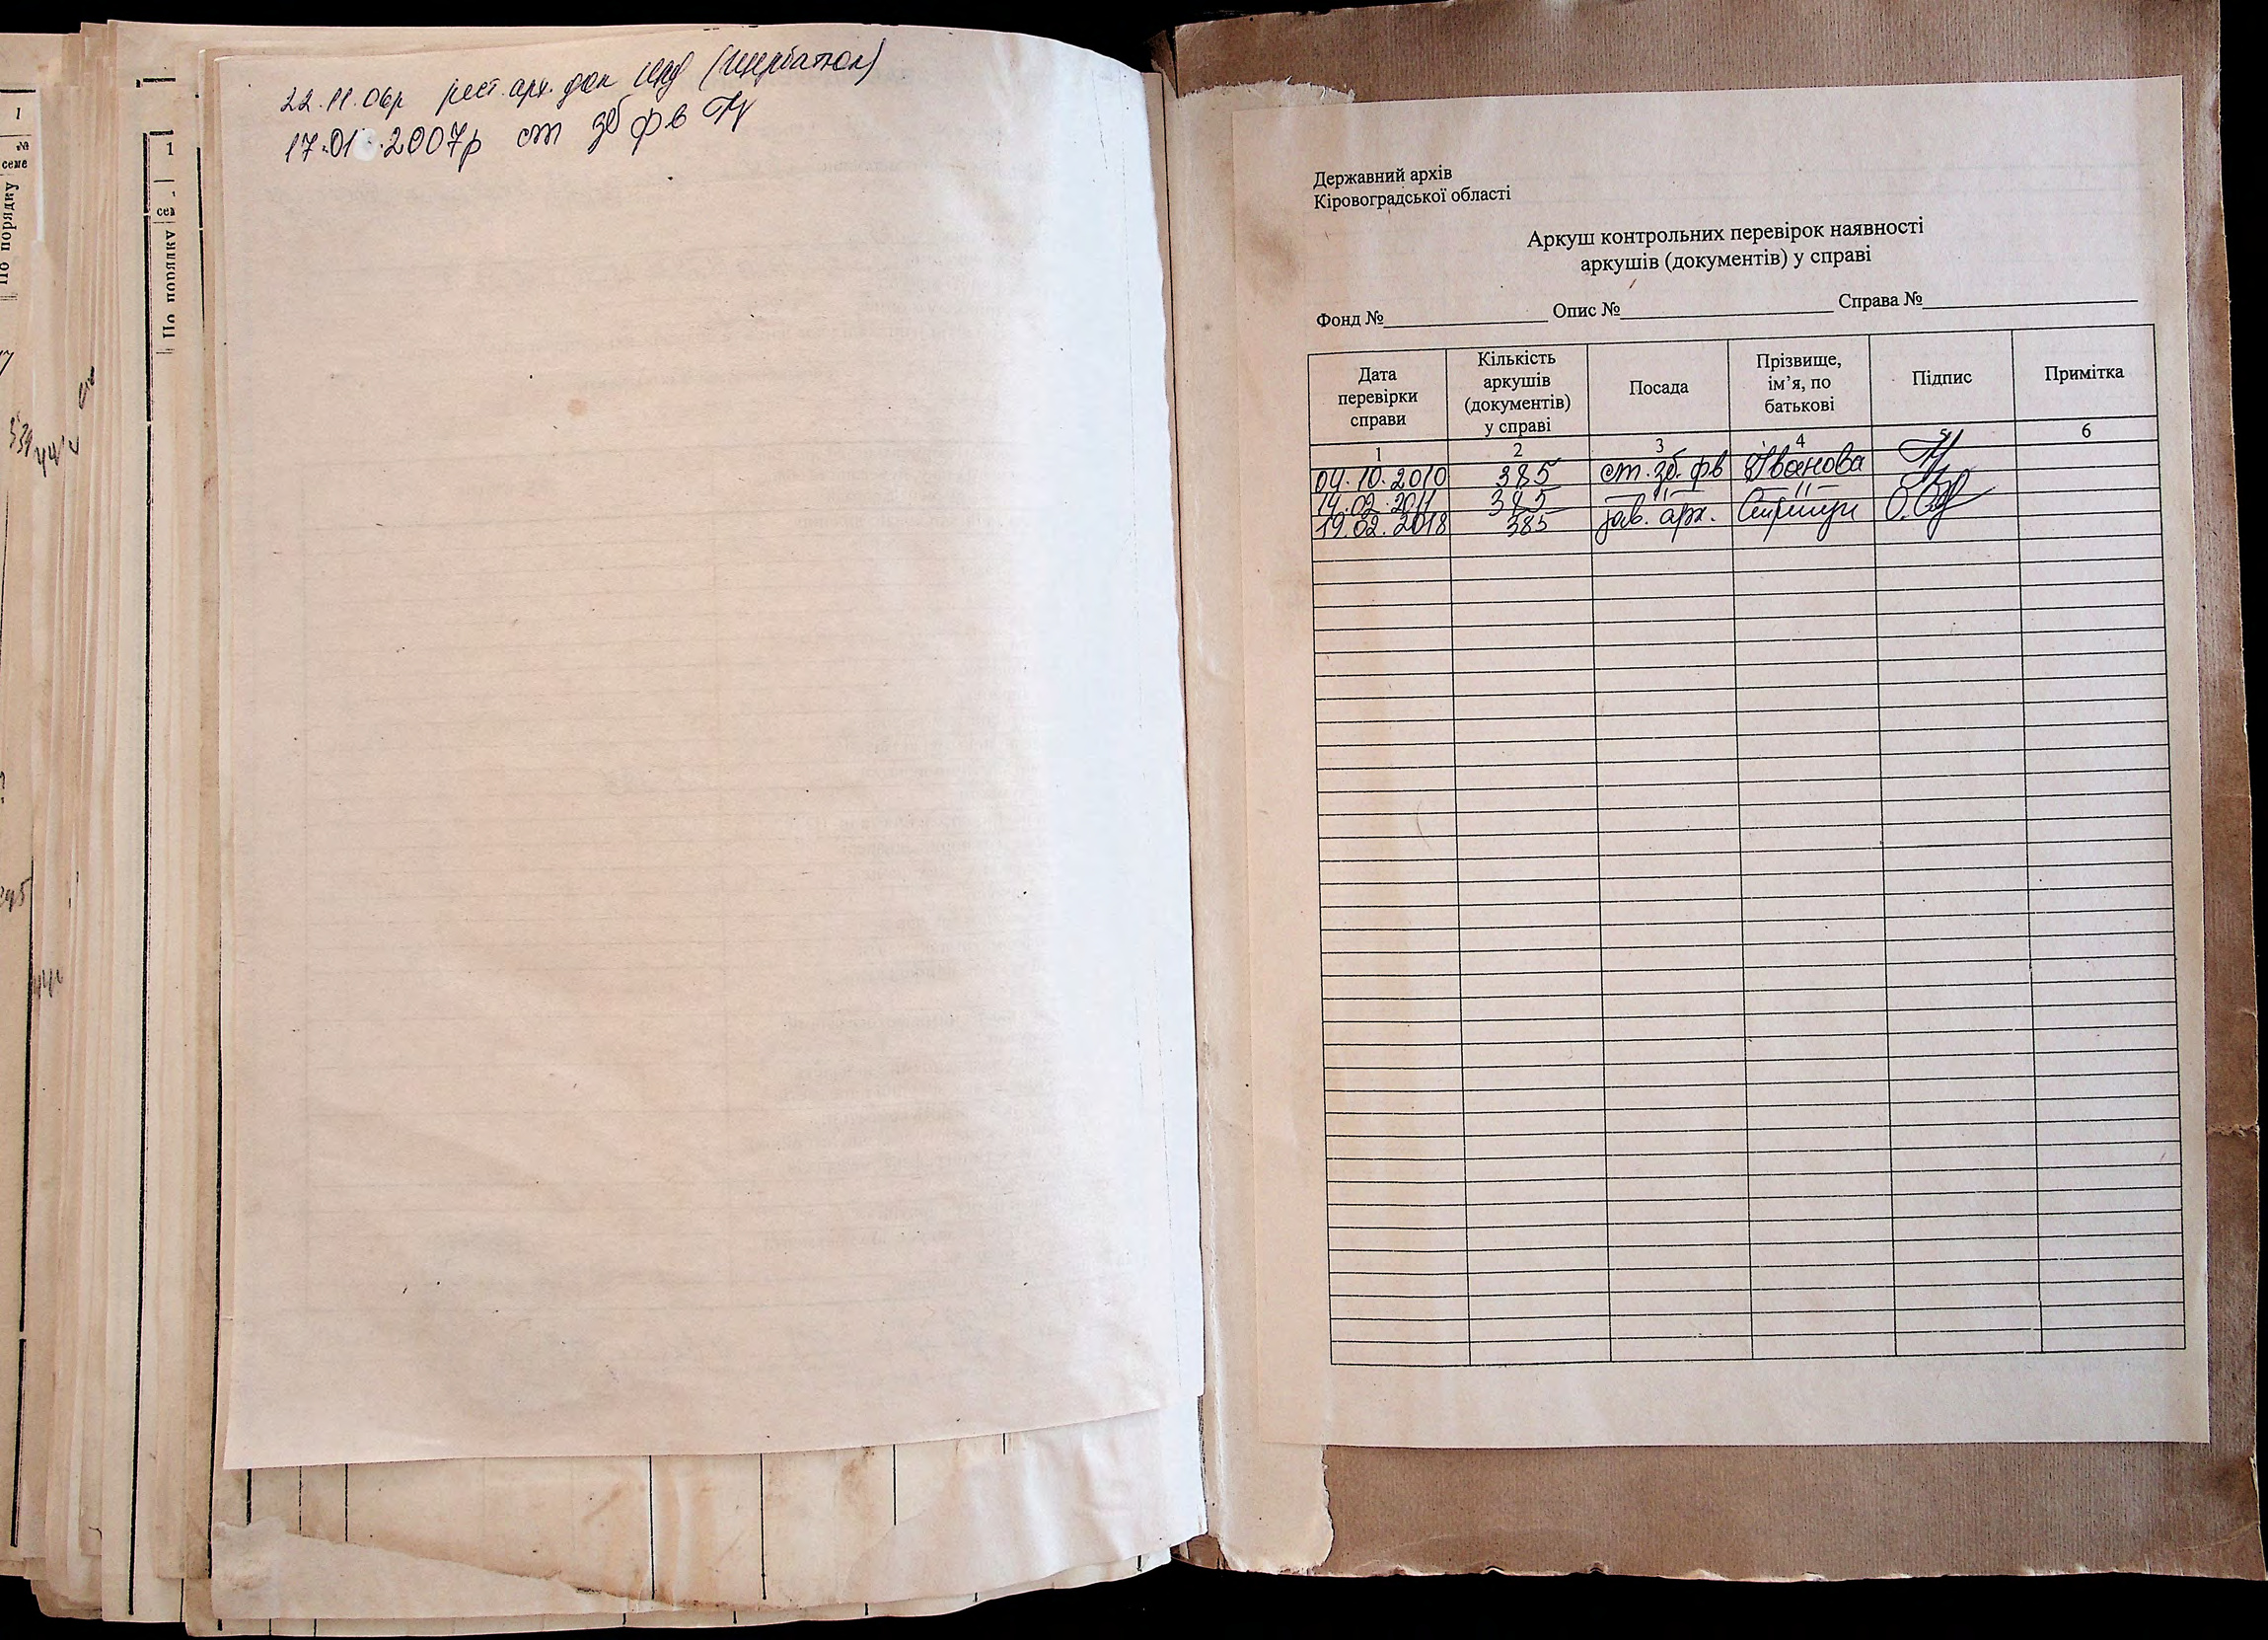 22.11.06р рест. арх. док
17.01.2007р ст зб фв
1
№
семе
По порядку
1
По порядку
Державний архів
Кіровоградської області
Аркуш контрольних перевірок наявності
аркушів (документів) у справі
Фонд № Опис № Справа №
Дата перевірки справи
Кількість аркушів (документів) у справі
Посада
Прізвище, ім’я, по батькові
Підпис
Примітка
1 2 3 4 5 6
04.10.2010 385 ст. зб. фв Іванова
14.02.2011 385 —"— —"—
19.02.2018 385 зав. арх.